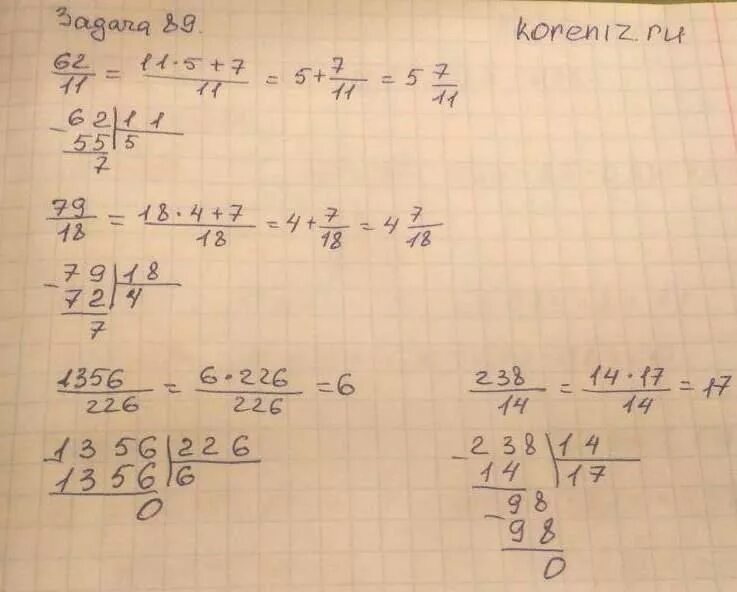 Задача 89.
koreniz.ru
62/11 = 11·5+7/11 = 5+7/11 = 5 7/11
-62|11
55|5
7
79/18 = 18·4+7/18 = 4+7/18 = 4 7/18
-79|18
72|4
7
1356/226 = 6·226/226 = 6
1356|226
1356|6
0
238/14 = 14·17/14 = 17
-238|14
14|17
-98
98
0